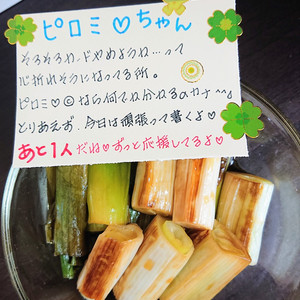 ピロミ♡ちゃん
そろそろガードやめようね…って
心折れそうになってる所。
ピロミ♡©なら何てねかねるのカナ^^
とりあえず、今日は頑張って書くよ♡
あと1人だね♡ずっと応援してるよ♡